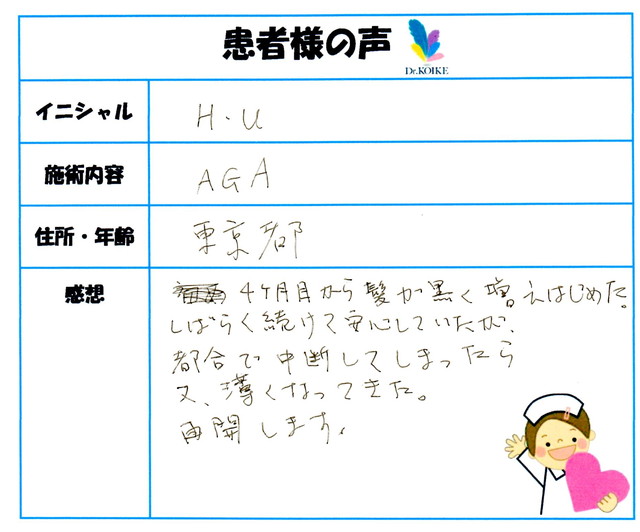 患者様の声
Dr.KOIKE
イニシャル
H.U
施術内容
AGA
住所・年齢
東京都
感想
4ヶ月目から髪が黒く増えはじめた。
しばらく続けて安心していたが、
都合で中断してしまったら
又、薄くなってきた。
再開します。